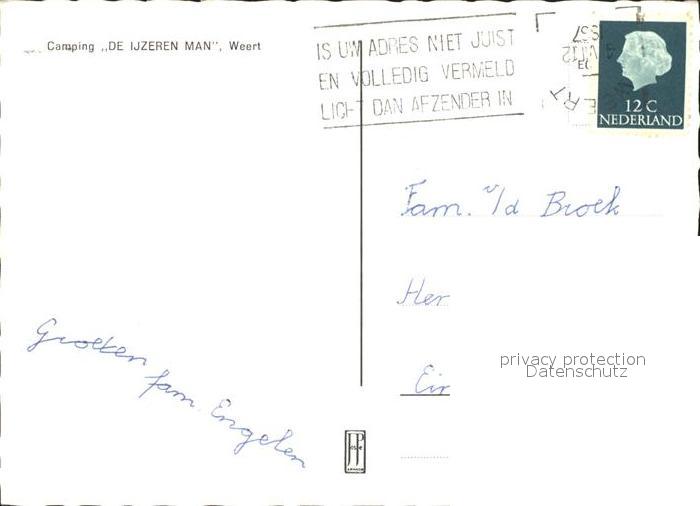 Camping „DE IJZEREN MAN”, Weert
IS UW ADRES NIET JUIST
EN VOLLEDIG VERMELD
LICHT DAN AFZENDER IN
12 C
NEDERLAND
Fam. v/d Broek
Her
Ein
privacy protection
Datenschutz
Groeten
fam. Engelen